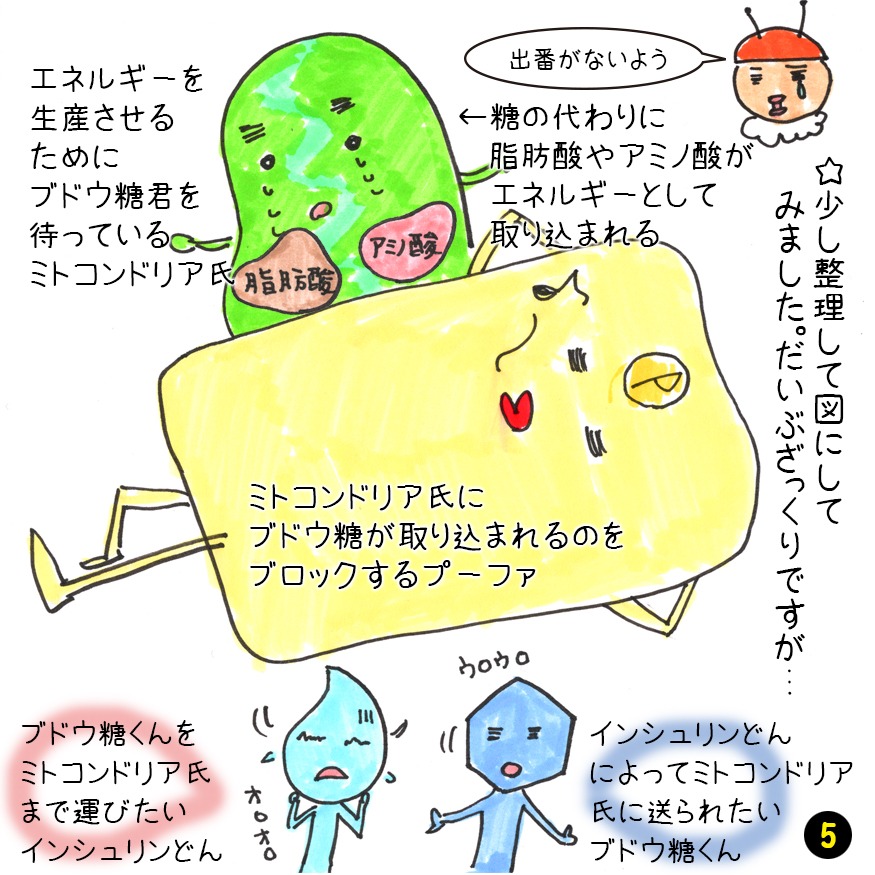 エネルギーを
生産させる
ために
ブドウ糖君を
待っている
ミトコンドリア氏
出番がないよう
←糖の代わりに
脂肪酸やアミノ酸が
エネルギーとして
取り込まれる
☆少し整理して図にして
みました。だいぶざっくりですが…
脂肪酸
アミノ酸
ミトコンドリア氏に
ブドウ糖が取り込まれるのを
ブロックするプーファ
ブドウ糖くんを
ミトコンドリア氏
まで運びたい
インシュリンどん
オロオロ
ウロウロ
インシュリンどん
によってミトコンドリア
氏に送られたい
ブドウ糖くん
5